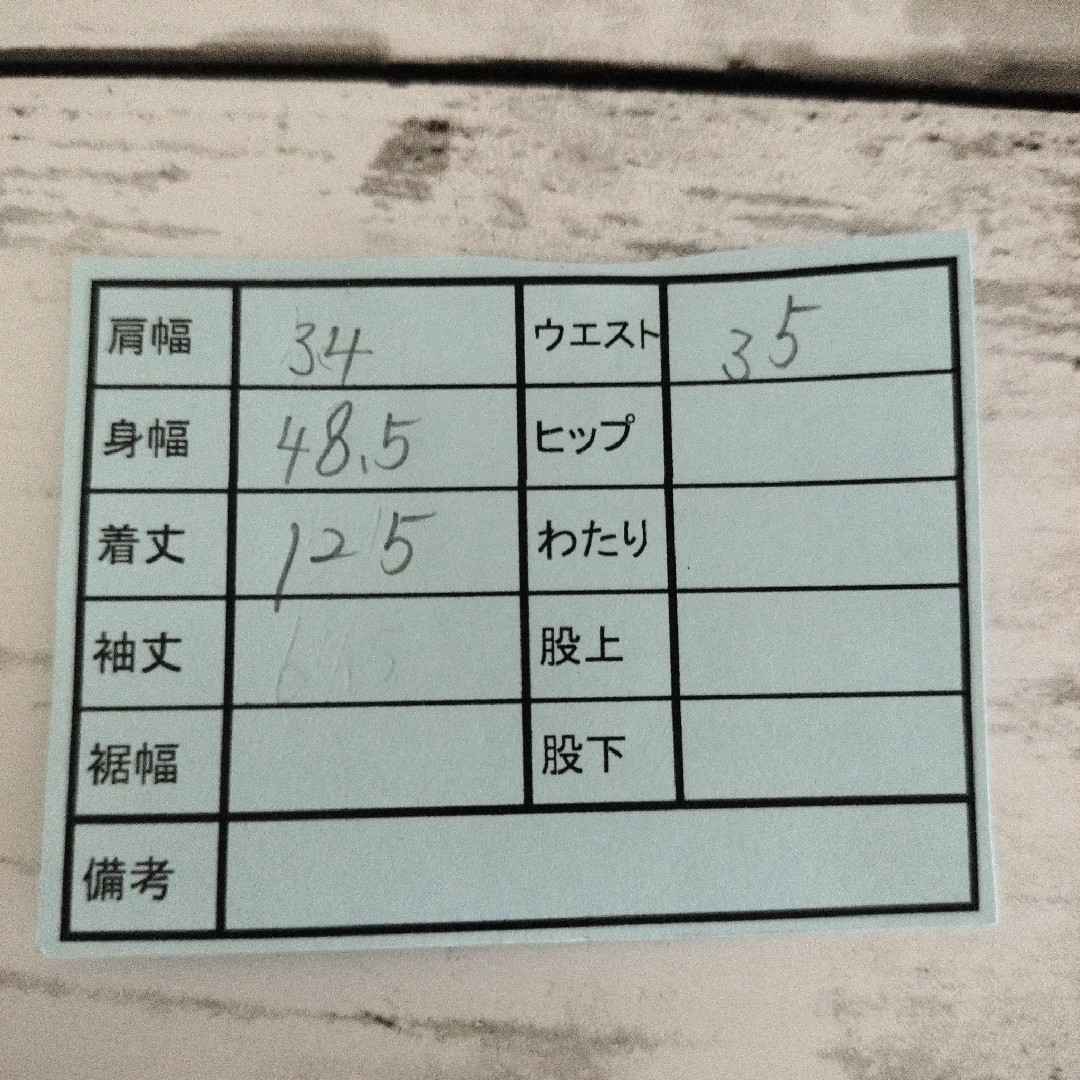 肩幅 34 ウエスト 35
身幅 48.5 ヒップ
着丈 125 わたり
袖丈 股上
裾幅 股下
備考